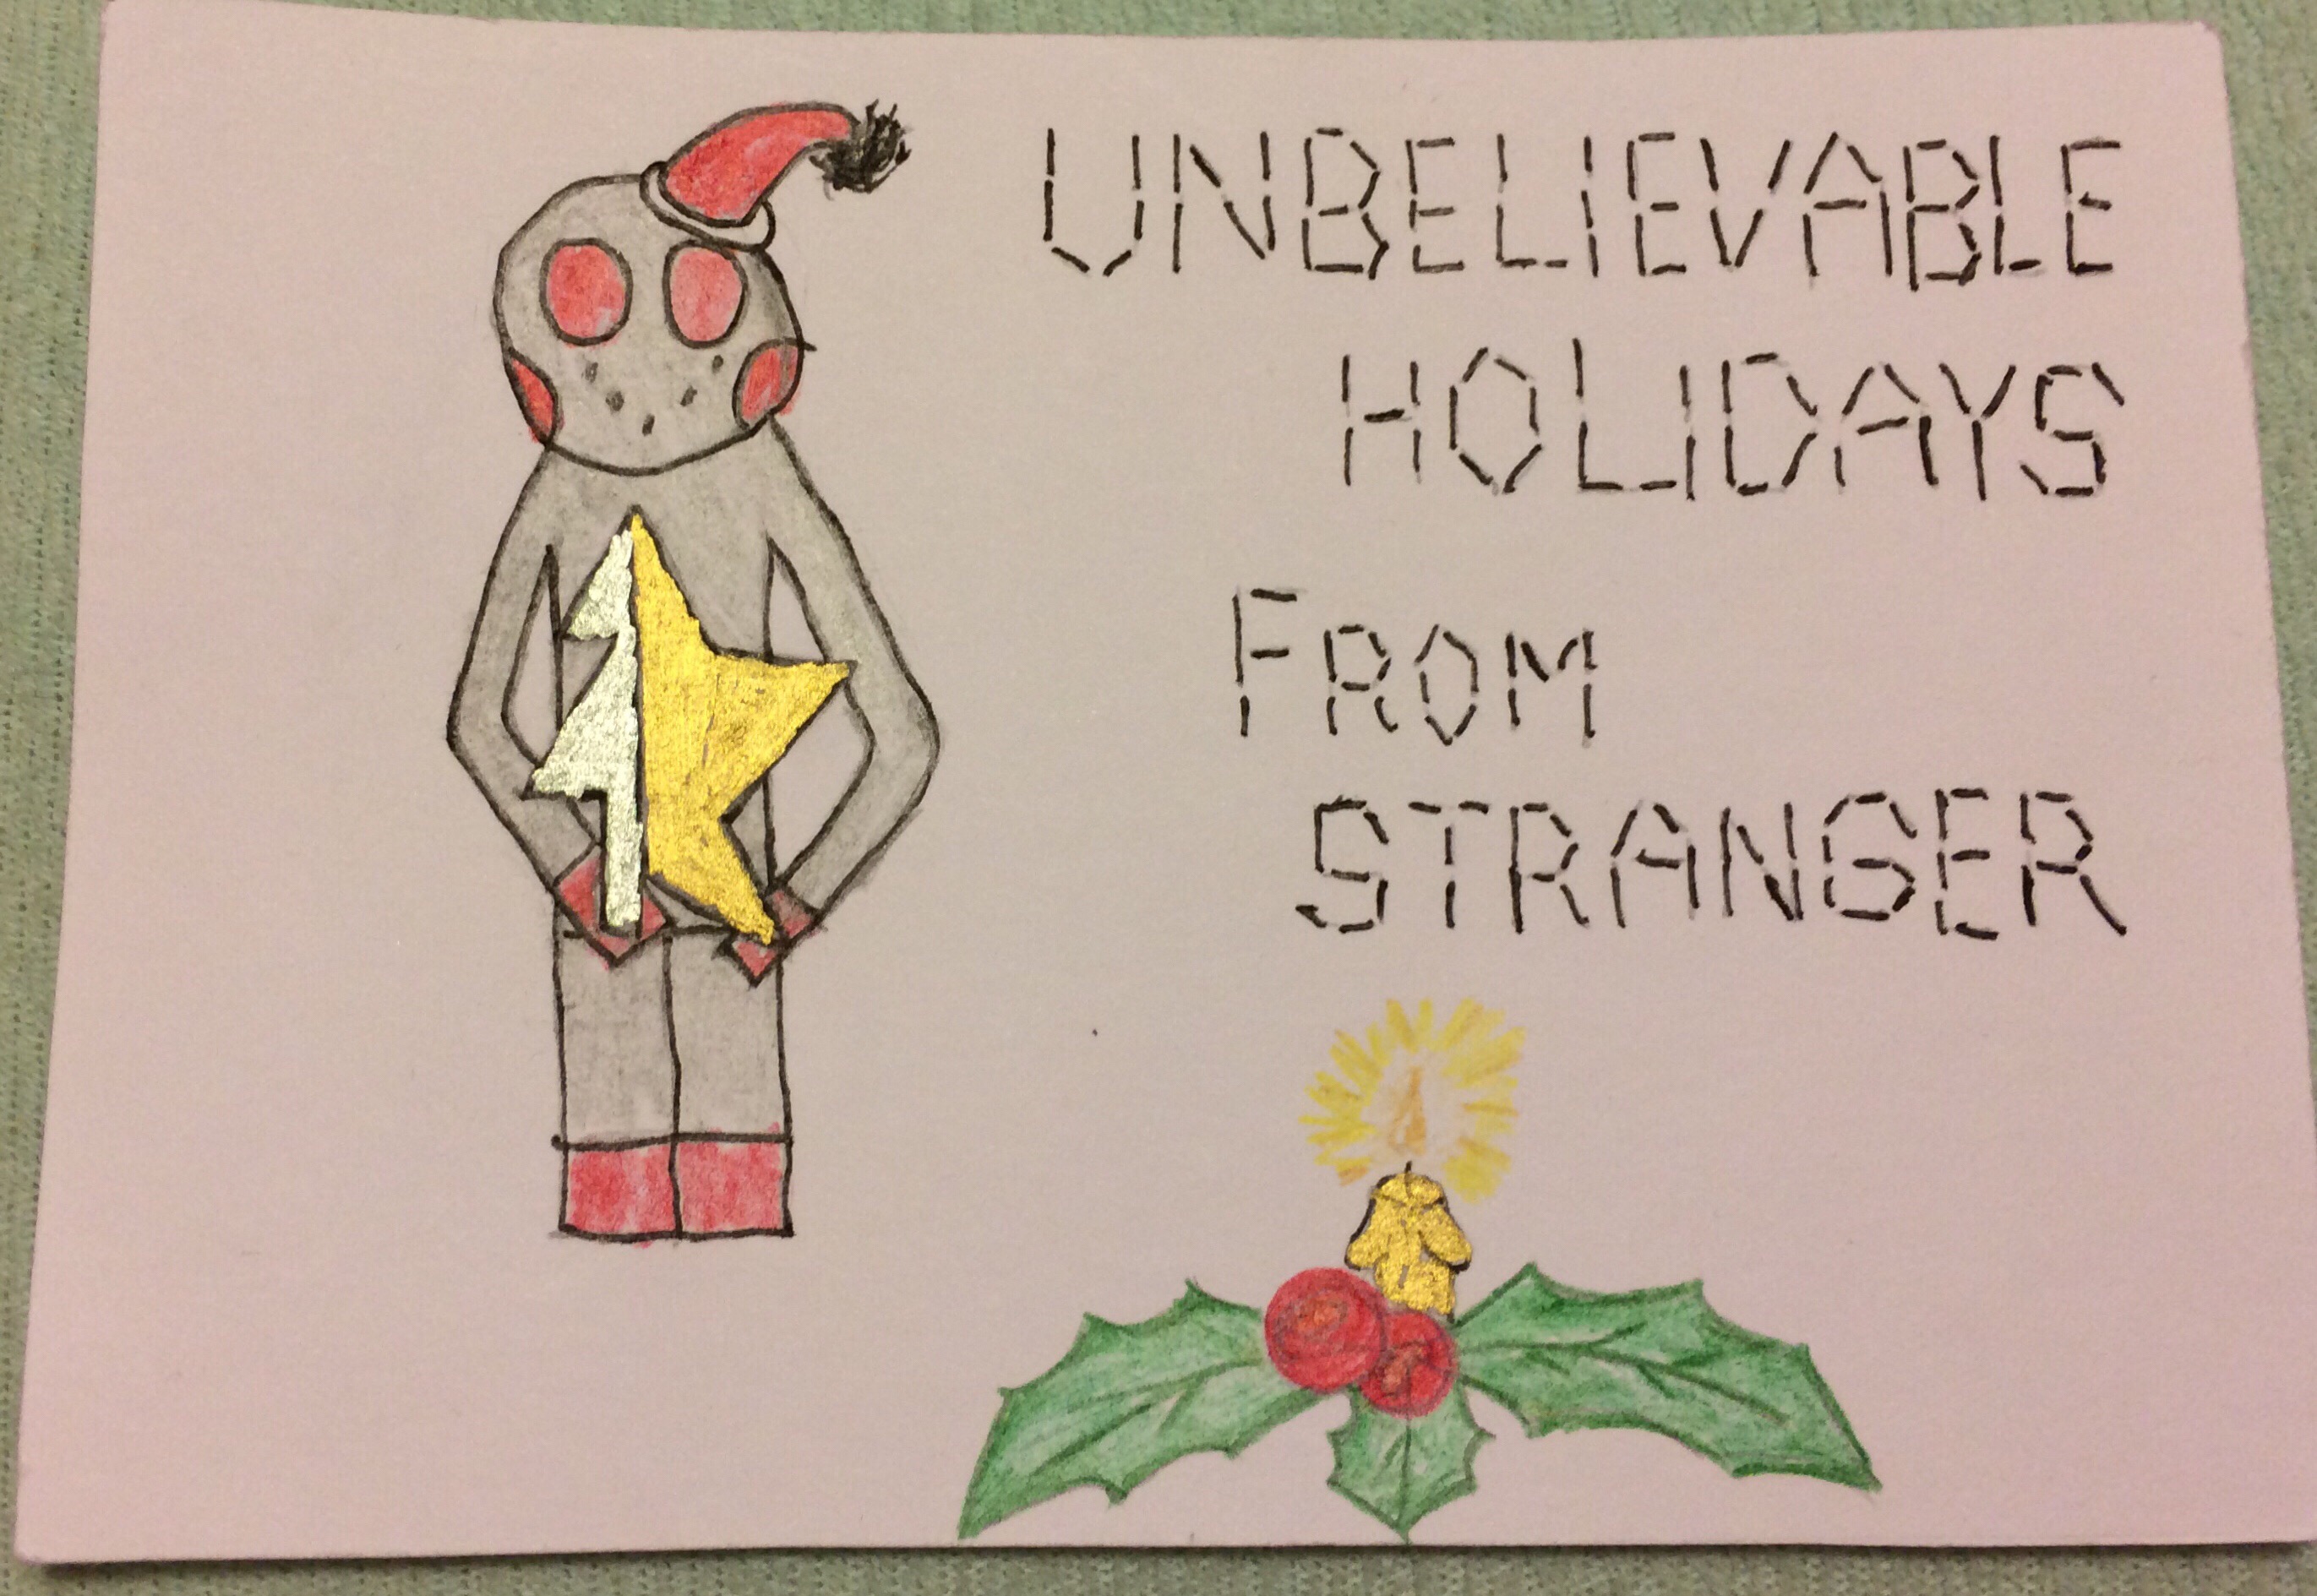 UNBELIEVABLE
HOLIDAYS
FROM
STRANGER